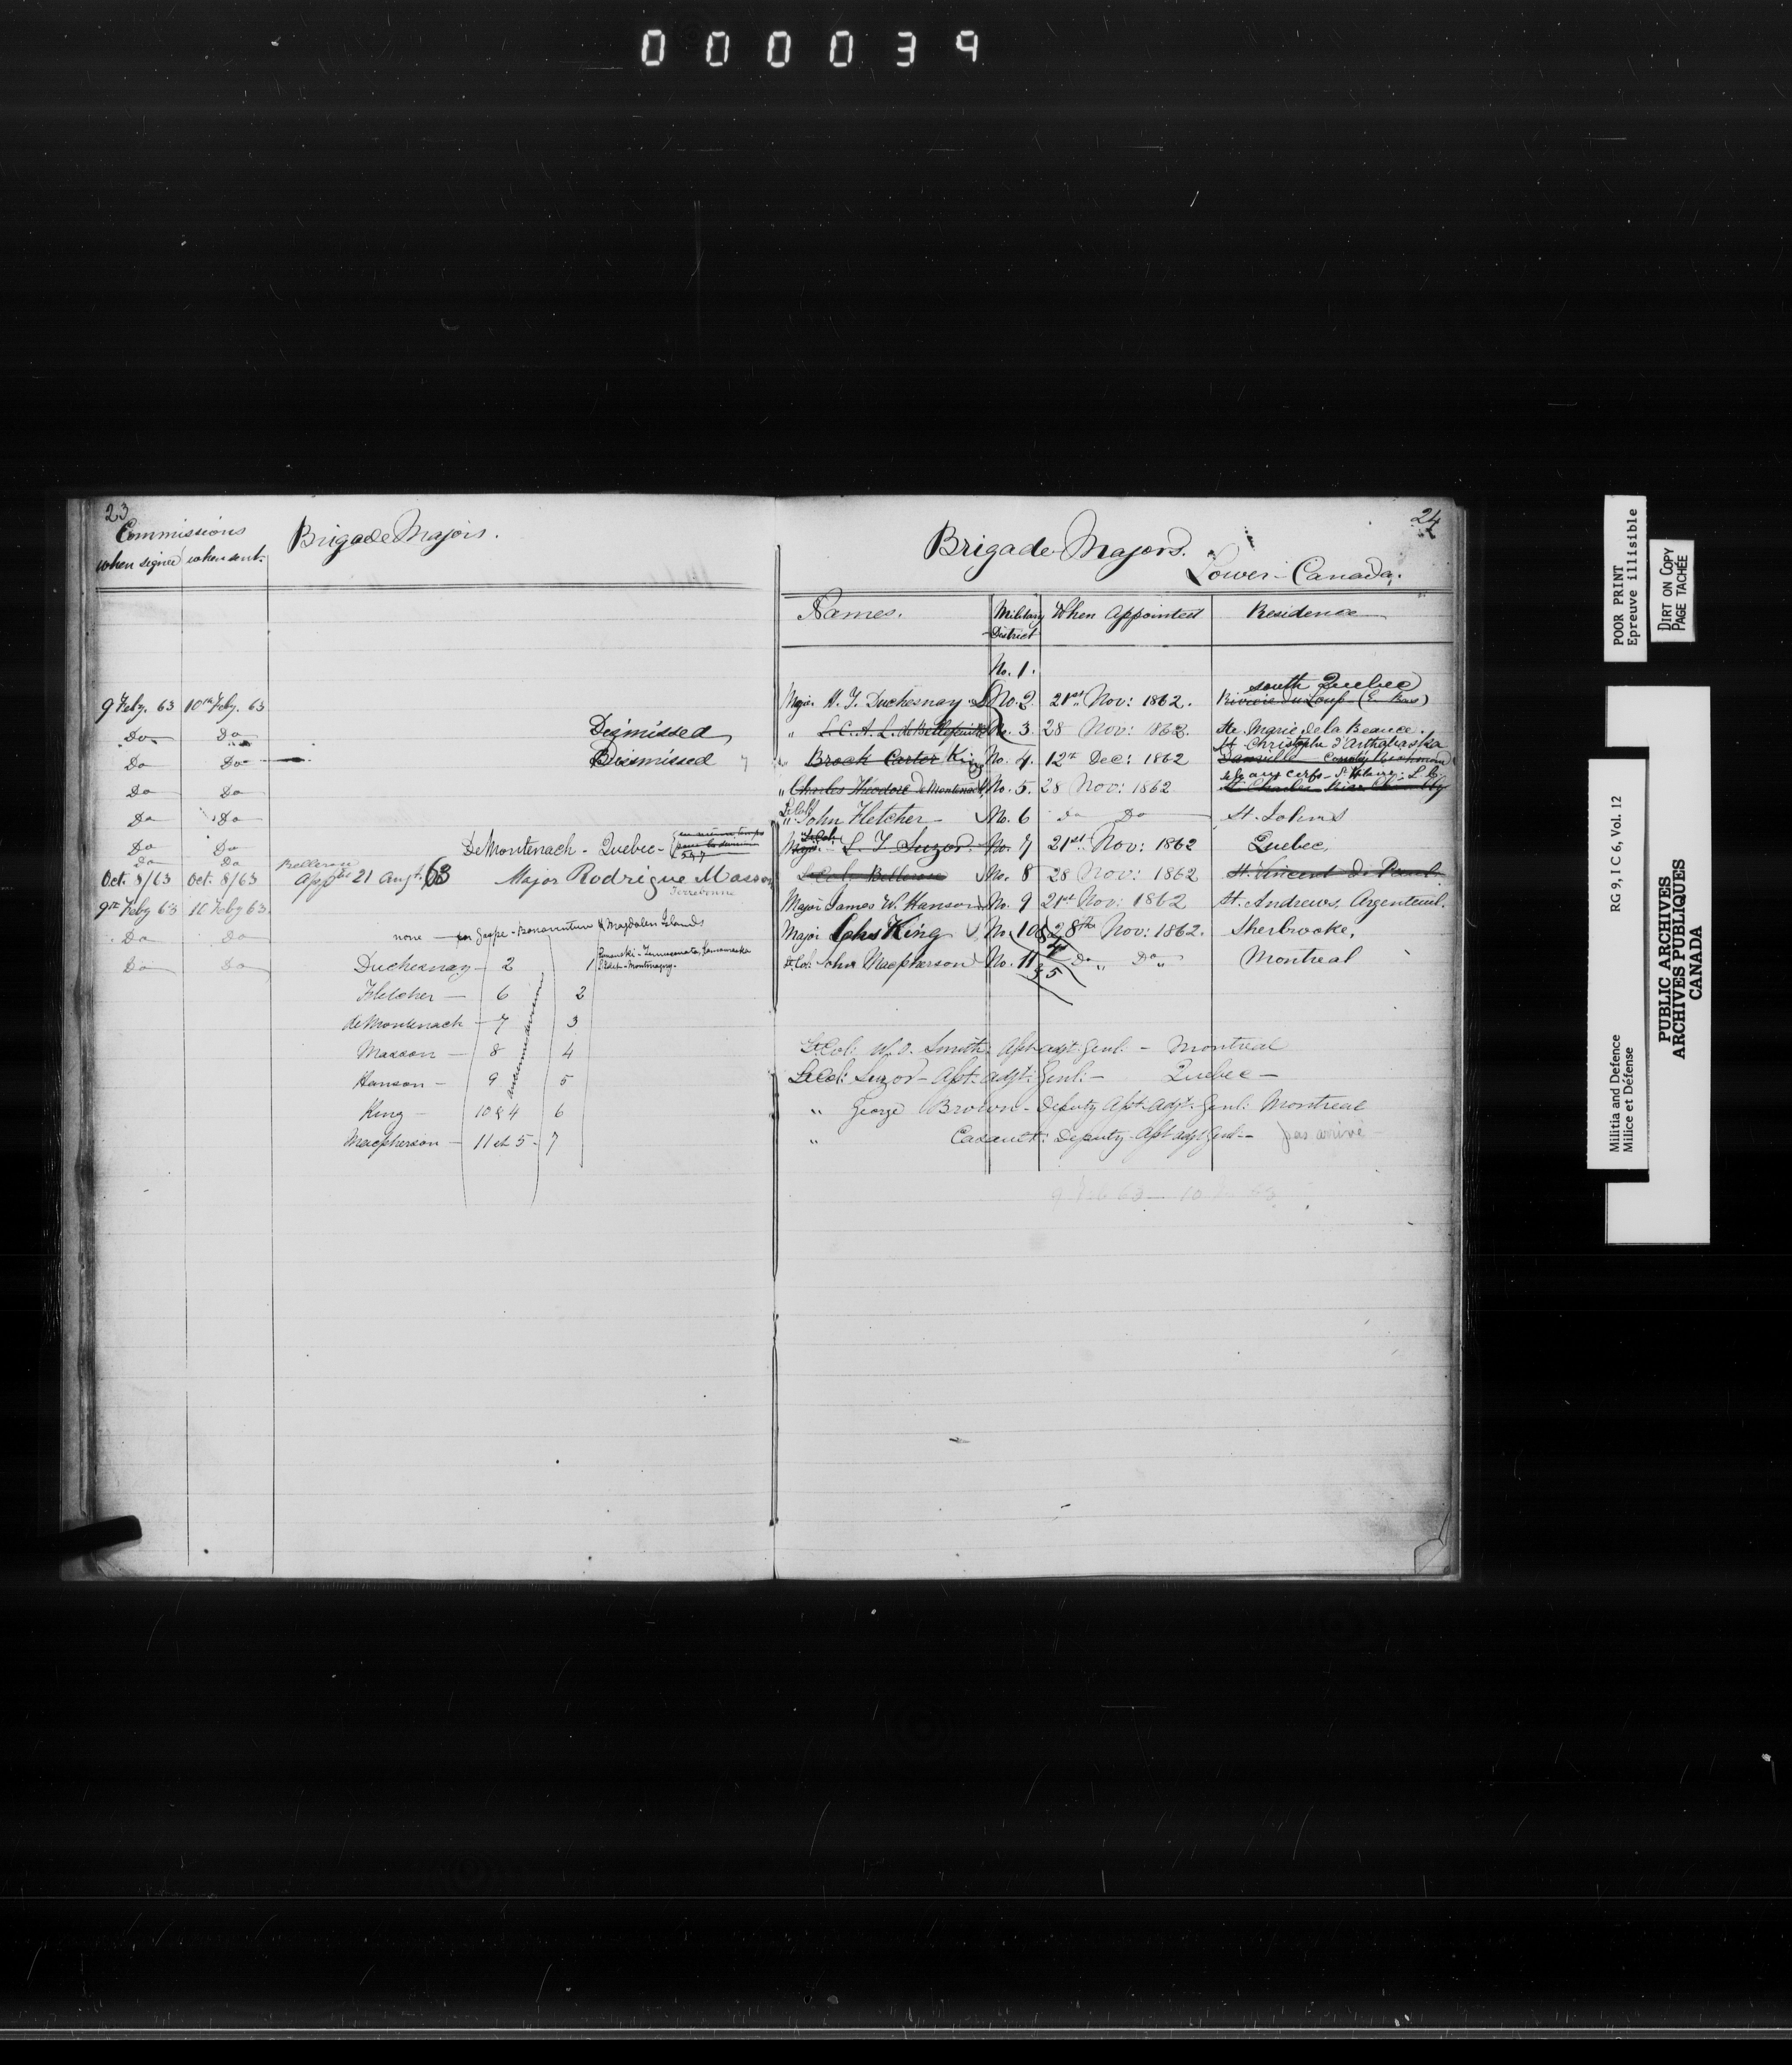 000039
23
Commissions
when signed when sent.
Brigade Majors.
9 Feby. 63 10th Feby. 63
Do Do Dismissed
Do Do Dismissed
Do Do
Do Do
Do Do DeMontenach - Quebec -
5 & 7
Do Do Belleron
Oct. 8/63 Oct. 8/63 App 21 Augt. 63 Major Rodrigue Masson
Terrebonne
9th Feby 63 10 Feby 63.
Do Do none - for Gaspe - Bonaventure & Magdalen Islands
Do Do Duchesnay - 2 1 Rimouski - Temiscouata, Kamouraska
L'Islet - Montmagny.
Fletcher - 6 2
deMontenach - 7 3
Masson - 8 4
Hanson - 9 5
King - 10 & 4 6
Macpherson - 11 et 5 - 7
24
Brigade Majors.
Lower-Canada.
Names. Military District When Appointed Residence
No. 1.
south Quebec
Major H. T. Duchesnay No. 2. 21st Nov: 1862. Riviere du Loup (En Bas)
" L. C. A. L. de Bellefeuille No. 3. 28 Nov: 1862. Ste Marie de la Beauce.
St Christophe d'Arthabaska
" Brock Carter King No. 4. 12th Dec: 1862 Danville County Richmond
" Charles Theodore de Montenach No. 5. 28 Nov: 1862 St. Charles River Chambly
Lt Col John Fletcher - No. 6 Do Do St. Johns
Lt Col.
Major L. T. Suzor No. 7 21st Nov: 1862 Quebec,
Belleron No. 8 28 Nov: 1862 St. Vincent de Paul
Major James W. Hanson No. 9 21st Nov: 1862 St. Andrews. Argenteuil.
Major Chs King No. 10 & 4 28th Nov: 1862. Sherbrooke,
Lt. Col. John Macpherson No. 11 & 5 Do " Do " Montreal
Lt Col: W. O. Smith: Asst adjt: Genl: - Montreal
Lt Col: Suzor - Ast: adjt: Genl: - Quebec -
" George Brown - Deputy Ast. Adjt. Genl: Montreal
" Casault: Deputy Ast adjt Genl - pas arrivé
9 Feb 63 - 10 63
POOR PRINT
Epreuve illisible
DIRT ON COPY
PAGE TACHÉE
RG 9, I C 6, Vol. 12
Militia and Defence
Milice et Défense
PUBLIC ARCHIVES
ARCHIVES PUBLIQUES
CANADA